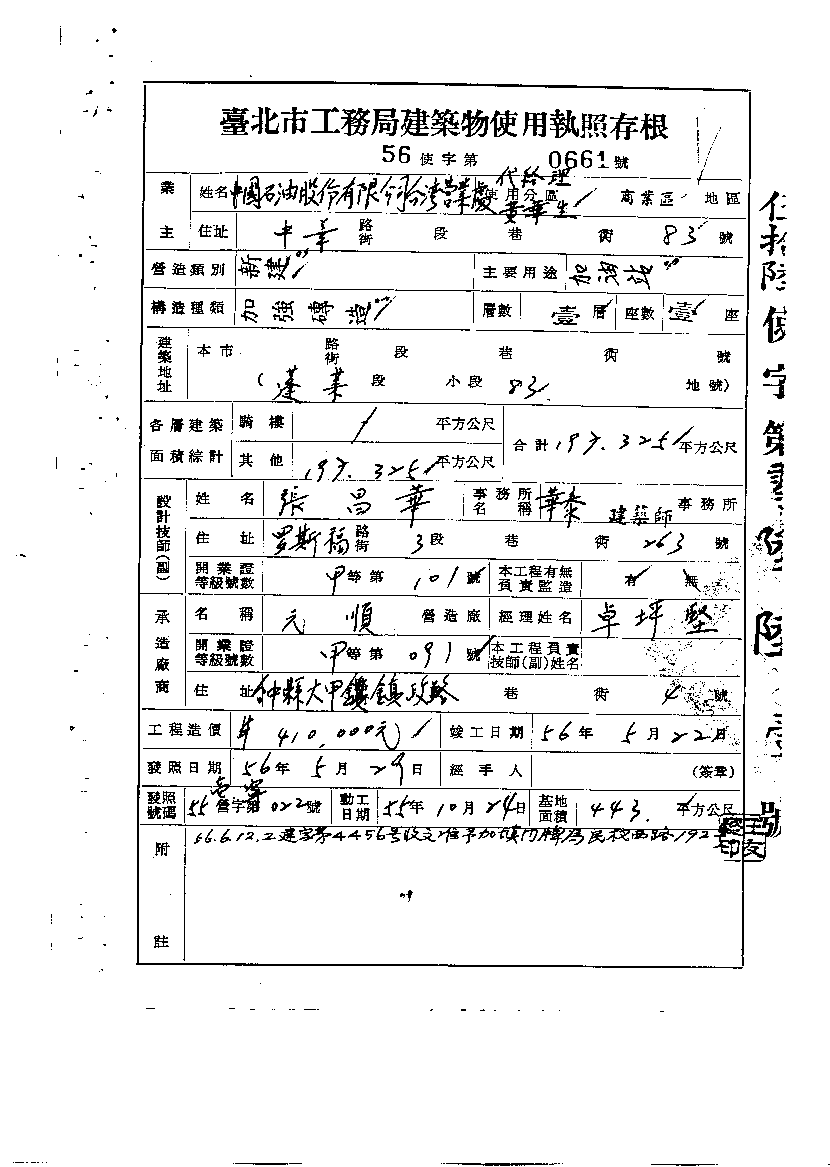 臺北市工務局建築物使用執照存根
56使字第 0661號
業主 姓名 中國石油股份有限公司台灣營業處 代經理 黃華生 使用分區 商業區 地區
住址 中華 路街 段 巷 衖 83 號
營造類別 新建 主要用途 加油站
構造種類 加強磚造 層數 壹層 座數 壹座
建築地址 本市 路街 段 巷 衖 號
(蓬萊段 小段 83 地號)
各層建築面積綜計 騎樓 / 平方公尺 合計 197.325 平方公尺
其他 197.325 平方公尺
設計技師(副) 姓名 張昌華 事務所名稱 華泰 建築師 事務所
住址 罗斯福 路街 3段 巷 衖 263 號
開業證等級號數 甲等第 101 號 本工程有無負責監造 有 無
承造廠商 名稱 元順 營造廠 經理姓名 卓坪堅
開業證等級號數 甲等第 091 號 本工程負責技師(副)姓名
住址 中縣大甲鎮鎮政路 巷 衖 4 號
工程造價 410,000元 竣工日期 56年 5月 22日
發照日期 56年 5月 29日 經手人 (簽章)
發照號碼 55營字第 022號 動工日期 55年 10月 24日 基地面積 443. 平方公尺
附註 56.6.12.工建字第4456号收文准予加填門牌為民权西路192
伍拾陸使字第 陸陸 號